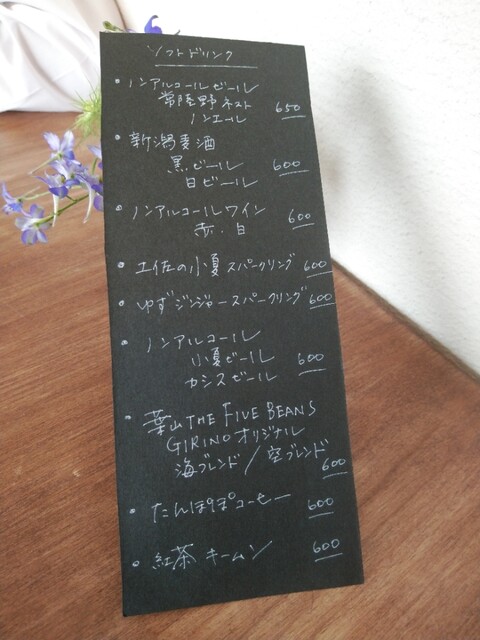 ソフトドリンク
・ノンアルコールビール
常陸野ネスト
ノンエール 650
・新潟麦酒
黒ビール 600
白ビール
・ノンアルコールワイン
赤・白 600
・土佐の小夏スパークリング 600
・ゆずジンジャースパークリング 600
・ノンアルコール
小夏ビール 600
カシスビール
・葉山 THE FIVE BEANS
GIRINO オリジナル
海ブレンド/空ブレンド
600
・たんぽぽコーヒー 600
・紅茶 キームン 600